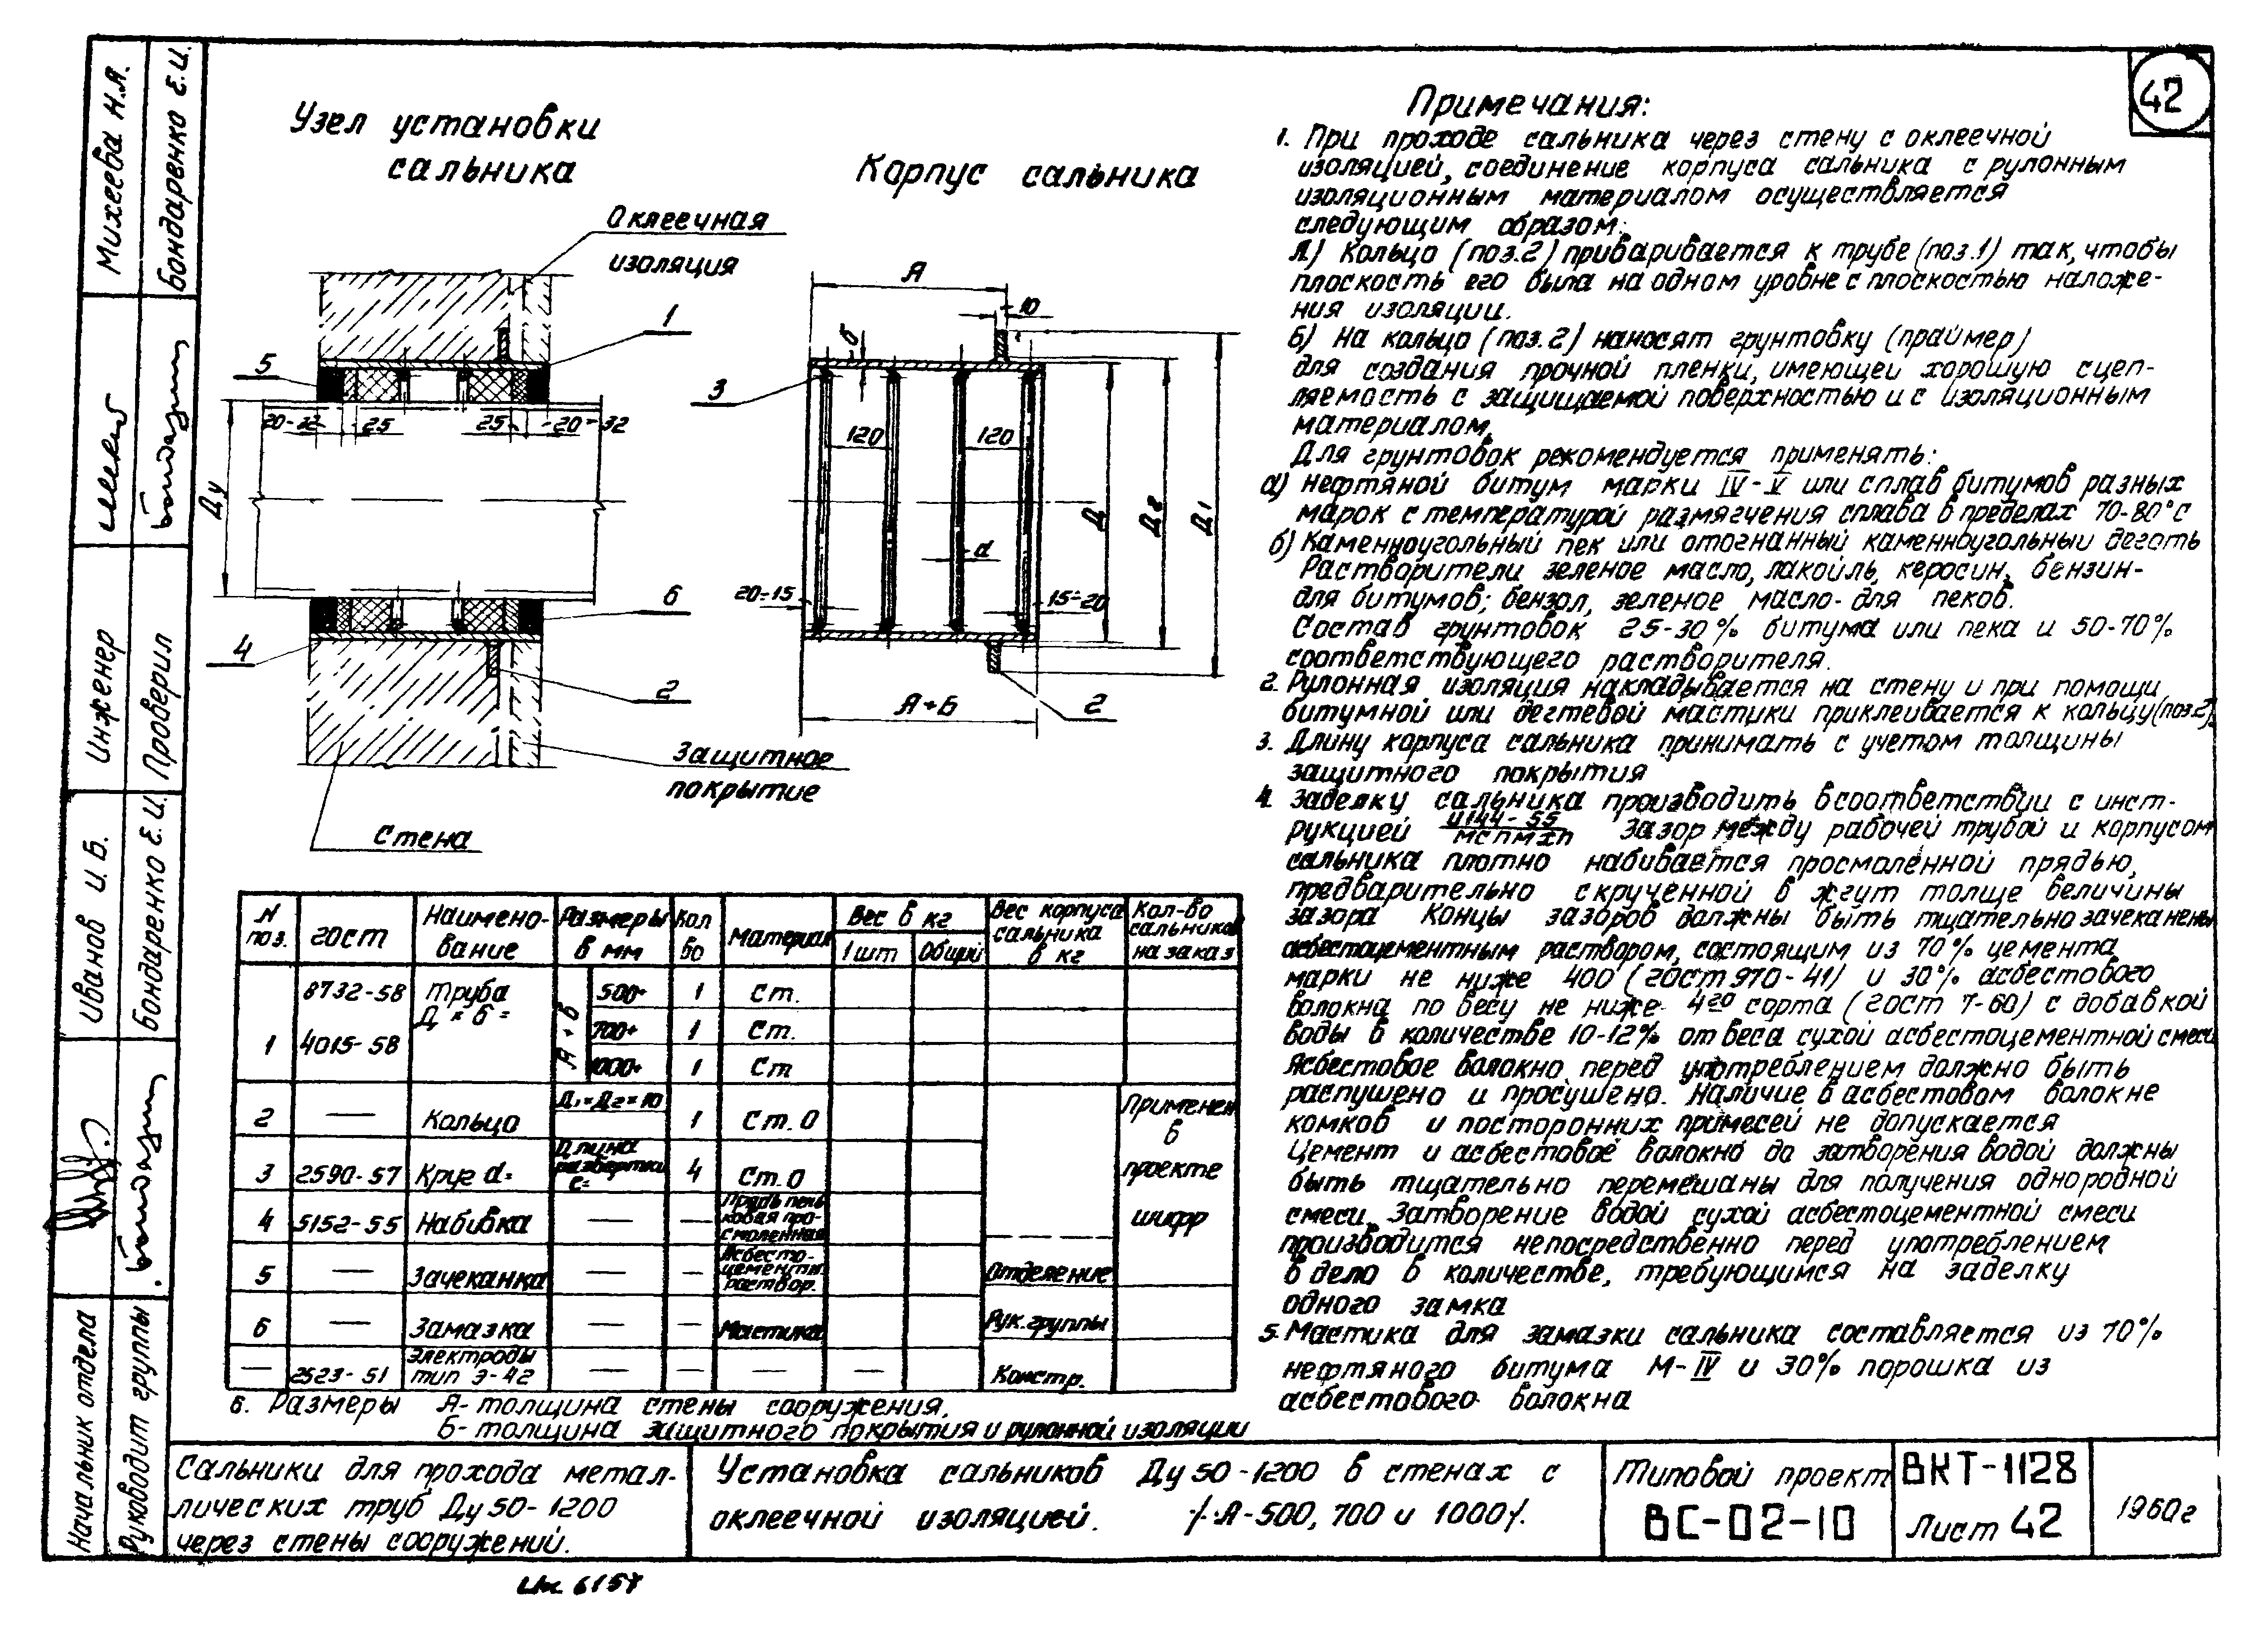 42
Узел установки
сальника
Корпус сальника
Оклеечная
изоляция
1
5
20-32
25
25
20-32
Ду
6
4
2
Защитное
покрытие
Стена
А
10
б
3
120
120
d
Д
Д2
Д1
20÷15
15÷20
А+Б
2
Примечания:
1. При проходе сальника через стену с оклеечной
изоляцией, соединение корпуса сальника с рулонным
изоляционным материалом осуществляется
следующим образом:
А) Кольцо (поз.2) приваривается к трубе (поз.1) так, чтобы
плоскость его была на одном уровне с плоскостью наложе-
ния изоляции.
Б) На кольцо (поз.2) наносят грунтовку (праймер)
для создания прочной пленки, имеющей хорошую сцеп-
ляемость с защищаемой поверхностью и с изоляционным
материалом.
Для грунтовок рекомендуется применять:
а) Нефтяной битум марки IV-V или сплав битумов разных
марок с температурой размягчения сплава в пределах 70-80°С
б) Каменноугольный пек или отогнанный каменноугольный деготь
Растворители зеленое масло, лакойль, керосин, бензин-
для битумов; бензол, зеленое масло-для пеков.
Состав грунтовок 25-30% битума или пека и 50-70%
соответствующего растворителя.
2. Рулонная изоляция накладывается на стену и при помощи
битумной или дегтевой мастики приклеивается к кольцу (поз.2).
3. Длину корпуса сальника принимать с учетом толщины
защитного покрытия
4. Заделку сальника производить в соответствии с инст-
рукцией И144-55
МСПМХП Зазор между рабочей трубой и корпусом
сальника плотно набивается просмоленной прядью,
предварительно скрученной в жгут толще величины
зазора Концы зазоров должны быть тщательно зачеканены
асбестоцементным раствором, состоящим из 70% цемента
марки не ниже 400 (ГОСТ 970-41) и 30% асбестового
волокна по весу не ниже 4го сорта (ГОСТ 7-60) с добавкой
воды в количестве 10-12% от веса сухой асбестоцементной смеси
Асбестовое волокно перед употреблением должно быть
распушено и просушено. Наличие в асбестовом волокне
комков и посторонних примесей не допускается
Цемент и асбестовое волокно до затворения водой должны
быть тщательно перемешаны для получения однородной
смеси. Затворение водой сухой асбестоцементной смеси
производится непосредственно перед употреблением
в дело в количестве, требующимся на заделку
одного замка
5. Мастика для замазки сальника составляется из 70%
нефтяного битума М-IV и 30% порошка из
асбестового волокна
N поз. ГОСТ Наимено-вание Размеры в мм Кол во Материал Вес в кг 1 шт Общий Вес корпуса сальника в кг Кол-во сальников на заказ
1 8732-58 4015-58 Труба Д × б = А + Б
500+ 1 Ст.
700+ 1 Ст.
1000+ 1 Ст
2 — Кольцо Д1=Д2=10 1 Ст.0 Применен в
3 2590-57 Круг d= Длина развертки С= 4 Ст.0 проекте
4 5152-55 Набивка — — Прядь пеньковая просмоленная шифр
5 — Зачеканка — — Асбесто-цементн. раствор. Отделение
6 — Замазка — — Мастика Рук. группы
— 2523-51 Электроды тип Э-42 — — — — Констр.
6. Размеры А- толщина стены сооружения.
Б- толщина защитного покрытия и рулонной изоляции
Сальники для прохода метал-
лических труб Ду 50-1200
через стены сооружений.
Установка сальников Ду 50-1200 в стенах с
оклеечной изоляцией. /·А-500, 700 и 1000/.
Типовой проект
ВС-02-10
ВКТ-1128
Лист 42
1960г
Начальник отдела
Иванов И.Б.
Инженер
Михеева Н.Я.
Руководит группы
Бондаренко Е.И.
Проверил
Бондаренко Е.И.
6157